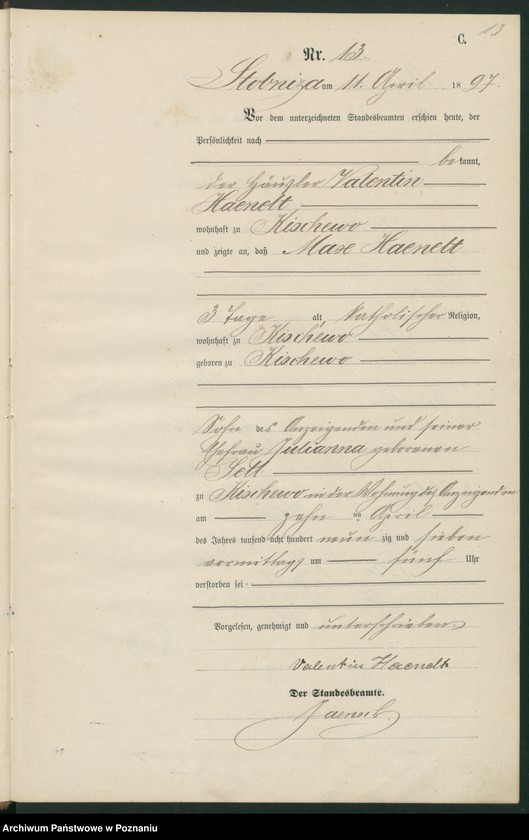 13
C.
Nr. 13.
Stobniza am 11. April 1897.
Vor dem unterzeichneten Standesbeamten erschien heute, der
Persönlichkeit nach
bekannt,
der Häusler Valentin
Haendt
wohnhaft zu Kischewo
und zeigte an, daß Max Haendt
3 Tage alt, katholischer Religion,
wohnhaft zu Kischewo
geboren zu Kischewo
Sohn des Anzeigenden und seiner
Ehefrau Julianna geborenen
zu Kischewo in der Wohnung des Anzeigenden
am zehn ten April
des Jahres tausend acht hundert neun zig und sieben
vormittags um fünf Uhr
verstorben sei.
Vorgelesen, genehmigt und unterschrieben.
Valentin Haendt
Der Standesbeamte.
Jaensch.
Archiwum Państwowe w Poznaniu